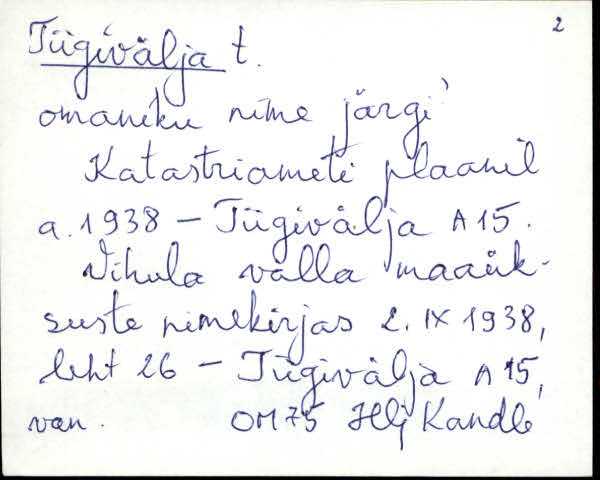 2
Tiigivälja t.
omaniku nime järgi
Katastriameti plaanil
a. 1938 – Tiigivälja A 15.
Vihula valla maaük-
suste nimekirjas 2. IX 1938,
leht 26 – Tiigivälja A 15,
van. OM 75 Hlj Kandle